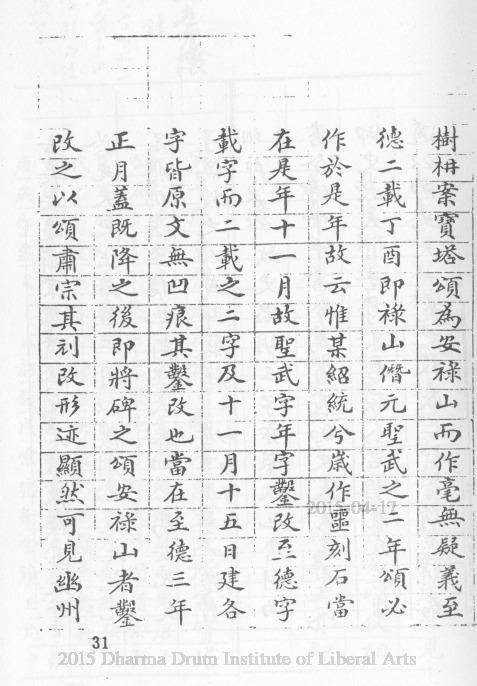 樹枏案寶塔頌為安祿山而作毫無疑義至
德二載丁酉即祿山僭元聖武之二年頌必
作於是年故云惟某紹統兮歲作噩刻石當
在是年十一月故聖武字年字鑿改至德字
載字而二載之二字及十一月十五日建各
字皆原文無凹痕其鑿改也當在至德三年
正月蓋既降之後即將碑之頌安祿山者鑿
改之以頌肅宗其刓改形迹顯然可見幽州
31
2015-04-17
2015 Dharma Drum Institute of Liberal Arts